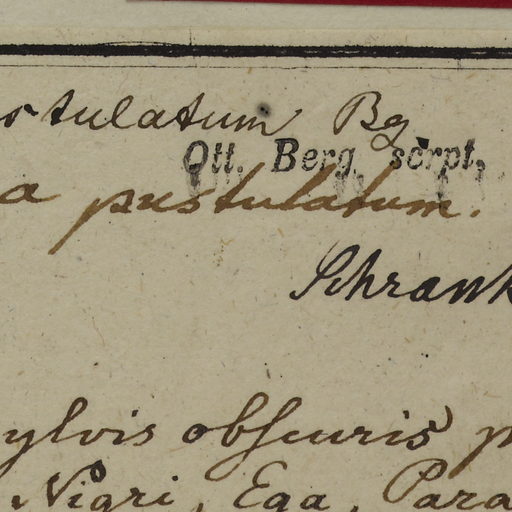 stulatum Bg
Ott. Berg scrpt.
a pustulatum.
Schrank
ylvis obscuris p
Nigri, Ega, Para